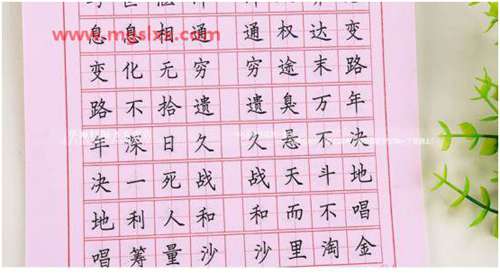 息息相通 通权达变
变化无穷 穷途末路
路不拾遗 遗臭万年
年深日久 久悬不决
决一死战 战天斗地
地利人和 和而不唱
唱筹量沙 沙里淘金